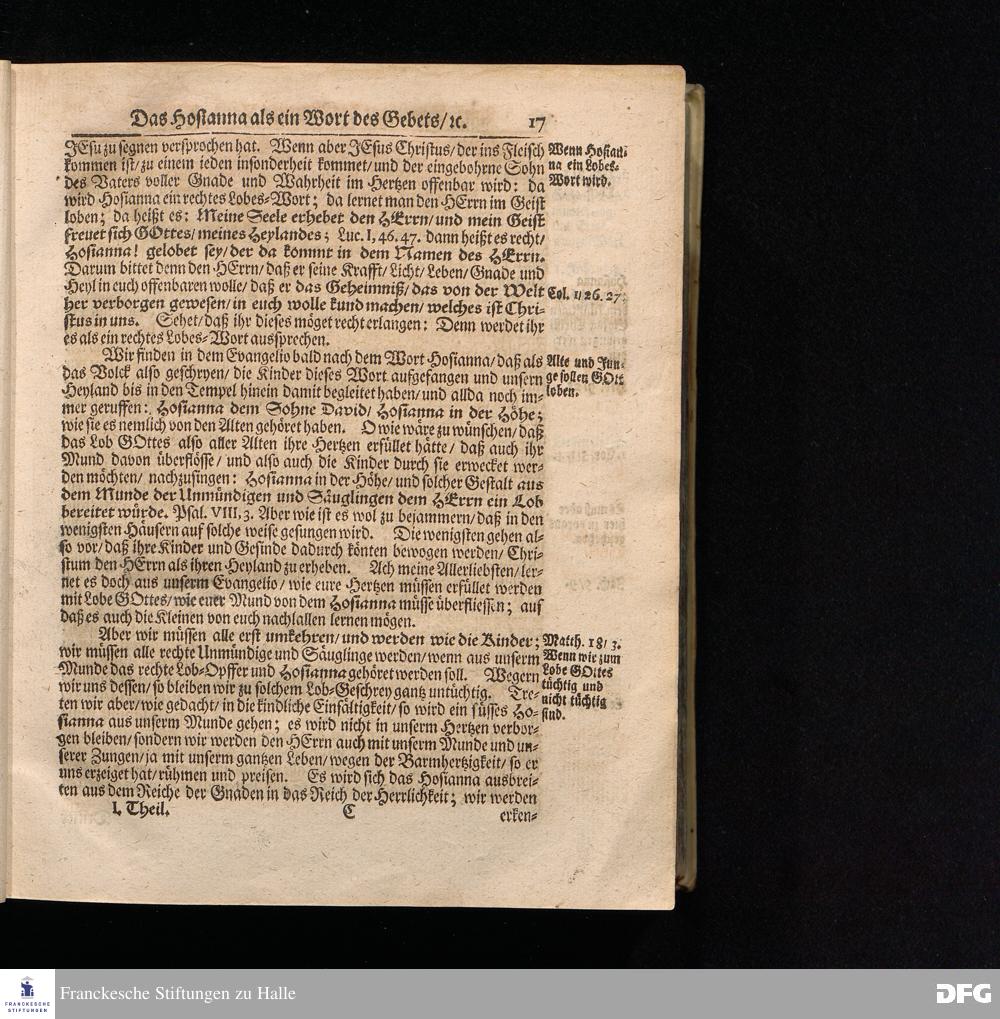 Das Hosianna als ein Wort des Gebets/ ꝛc. 17
JEsu zu segnen versprochen hat. Wenn aber JEsus Christus/ der ins Fleisch
kommen ist/ zu einem ieden insonderheit kommet/ und der eingebohrne Sohn
des Vaters voller Gnade und Wahrheit im Hertzen offenbar wird: da
wird Hosianna ein rechtes Lobes-Wort; da lernet man den HErrn im Geist
loben; da heißt es: Meine Seele erhebet den HErrn/ und mein Geist
freuet sich GOttes/ meines Heylandes; Luc. I, 46. 47. dann heißt es recht/
Hosianna! gelobet sey/ der da kommt in dem Namen des HErrn.
Darum bittet denn den HErrn/ daß er seine Krafft/ Licht/ Leben/ Gnade und
Heyl in euch offenbaren wolle/ daß er das Geheimniß/ das von der Welt
her verborgen gewesen/ in euch wolle kund machen/ welches ist Chri-
stus in uns. Sehet/ daß ihr dieses möget recht erlangen: Denn werdet ihr
es als ein rechtes Lobes-Wort aussprechen.
Wenn Hosian-
na ein Lobes-
Wort wird.
Col. 1/ 26. 27.
Wir finden in dem Evangelio bald nach dem Wort Hosianna/ daß als
das Volck also geschryen/ die Kinder dieses Wort aufgefangen und unsern
Heyland bis in den Tempel hinein damit begleitet haben/ und allda noch im-
mer geruffen: Hosianna dem Sohne David/ Hosianna in der Höhe;
wie sie es nemlich von den Alten gehöret haben. O wie wäre zu wünschen/ daß
das Lob GOttes also aller Alten ihre Hertzen erfüllet hätte/ daß auch ihr
Mund davon überflösse/ und also auch die Kinder durch sie erwecket wer-
den möchten/ nachzusingen: Hosianna in der Höhe/ und solcher Gestalt aus
dem Munde der Unmündigen und Säuglingen dem HErrn ein Lob
bereitet würde. Psal. VIII, 3. Aber wie ist es wol zu bejammern/ daß in den
wenigsten Häusern auf solche weise gesungen wird. Die wenigsten gehen al-
so vor/ daß ihre Kinder und Gesinde dadurch könten bewogen werden/ Chri-
stum den HErrn als ihren Heyland zu erheben. Ach meine Allerliebsten/ ler-
net es doch aus unserm Evangelio/ wie eure Hertzen müssen erfüllet werden
mit Lobe GOttes/ wie euer Mund von dem Hosianna müsse überfliessen; auf
daß es auch die Kleinen von euch nachlallen lernen mögen.
Alte und Jun-
ge sollen GOtt
loben.
Aber wir müssen alle erst umkehren/ und werden wie die Kinder;
wir müssen alle rechte Unmündige und Säuglinge werden/ wenn aus unserm
Munde das rechte Lob-Opffer und Hosianna gehöret werden soll. Wegern
wir uns dessen/ so bleiben wir zu solchem Lob-Geschrey gantz untüchtig. Tre-
ten wir aber/ wie gedacht/ in die kindliche Einfältigkeit/ so wird ein süsses Ho-
sianna aus unserm Munde gehen; es wird nicht in unserm Hertzen verbor-
gen bleiben/ sondern wir werden den HErrn auch mit unserm Munde und un-
serer Zungen/ ja mit unserm gantzen Leben/ wegen der Barmhertzigkeit/ so er
uns erzeiget hat/ rühmen und preisen. Es wird sich das Hosianna ausbrei-
ten aus dem Reiche der Gnaden in das Reich der Herrlichkeit; wir werden
Matth. 18/ 3.
Wenn wir zum
Lobe GOttes
tüchtig und
nicht tüchtig
sind.
I. Theil. C erken-
FRANCKESCHE
STIFTUNGEN
Franckesche Stiftungen zu Halle
DFG